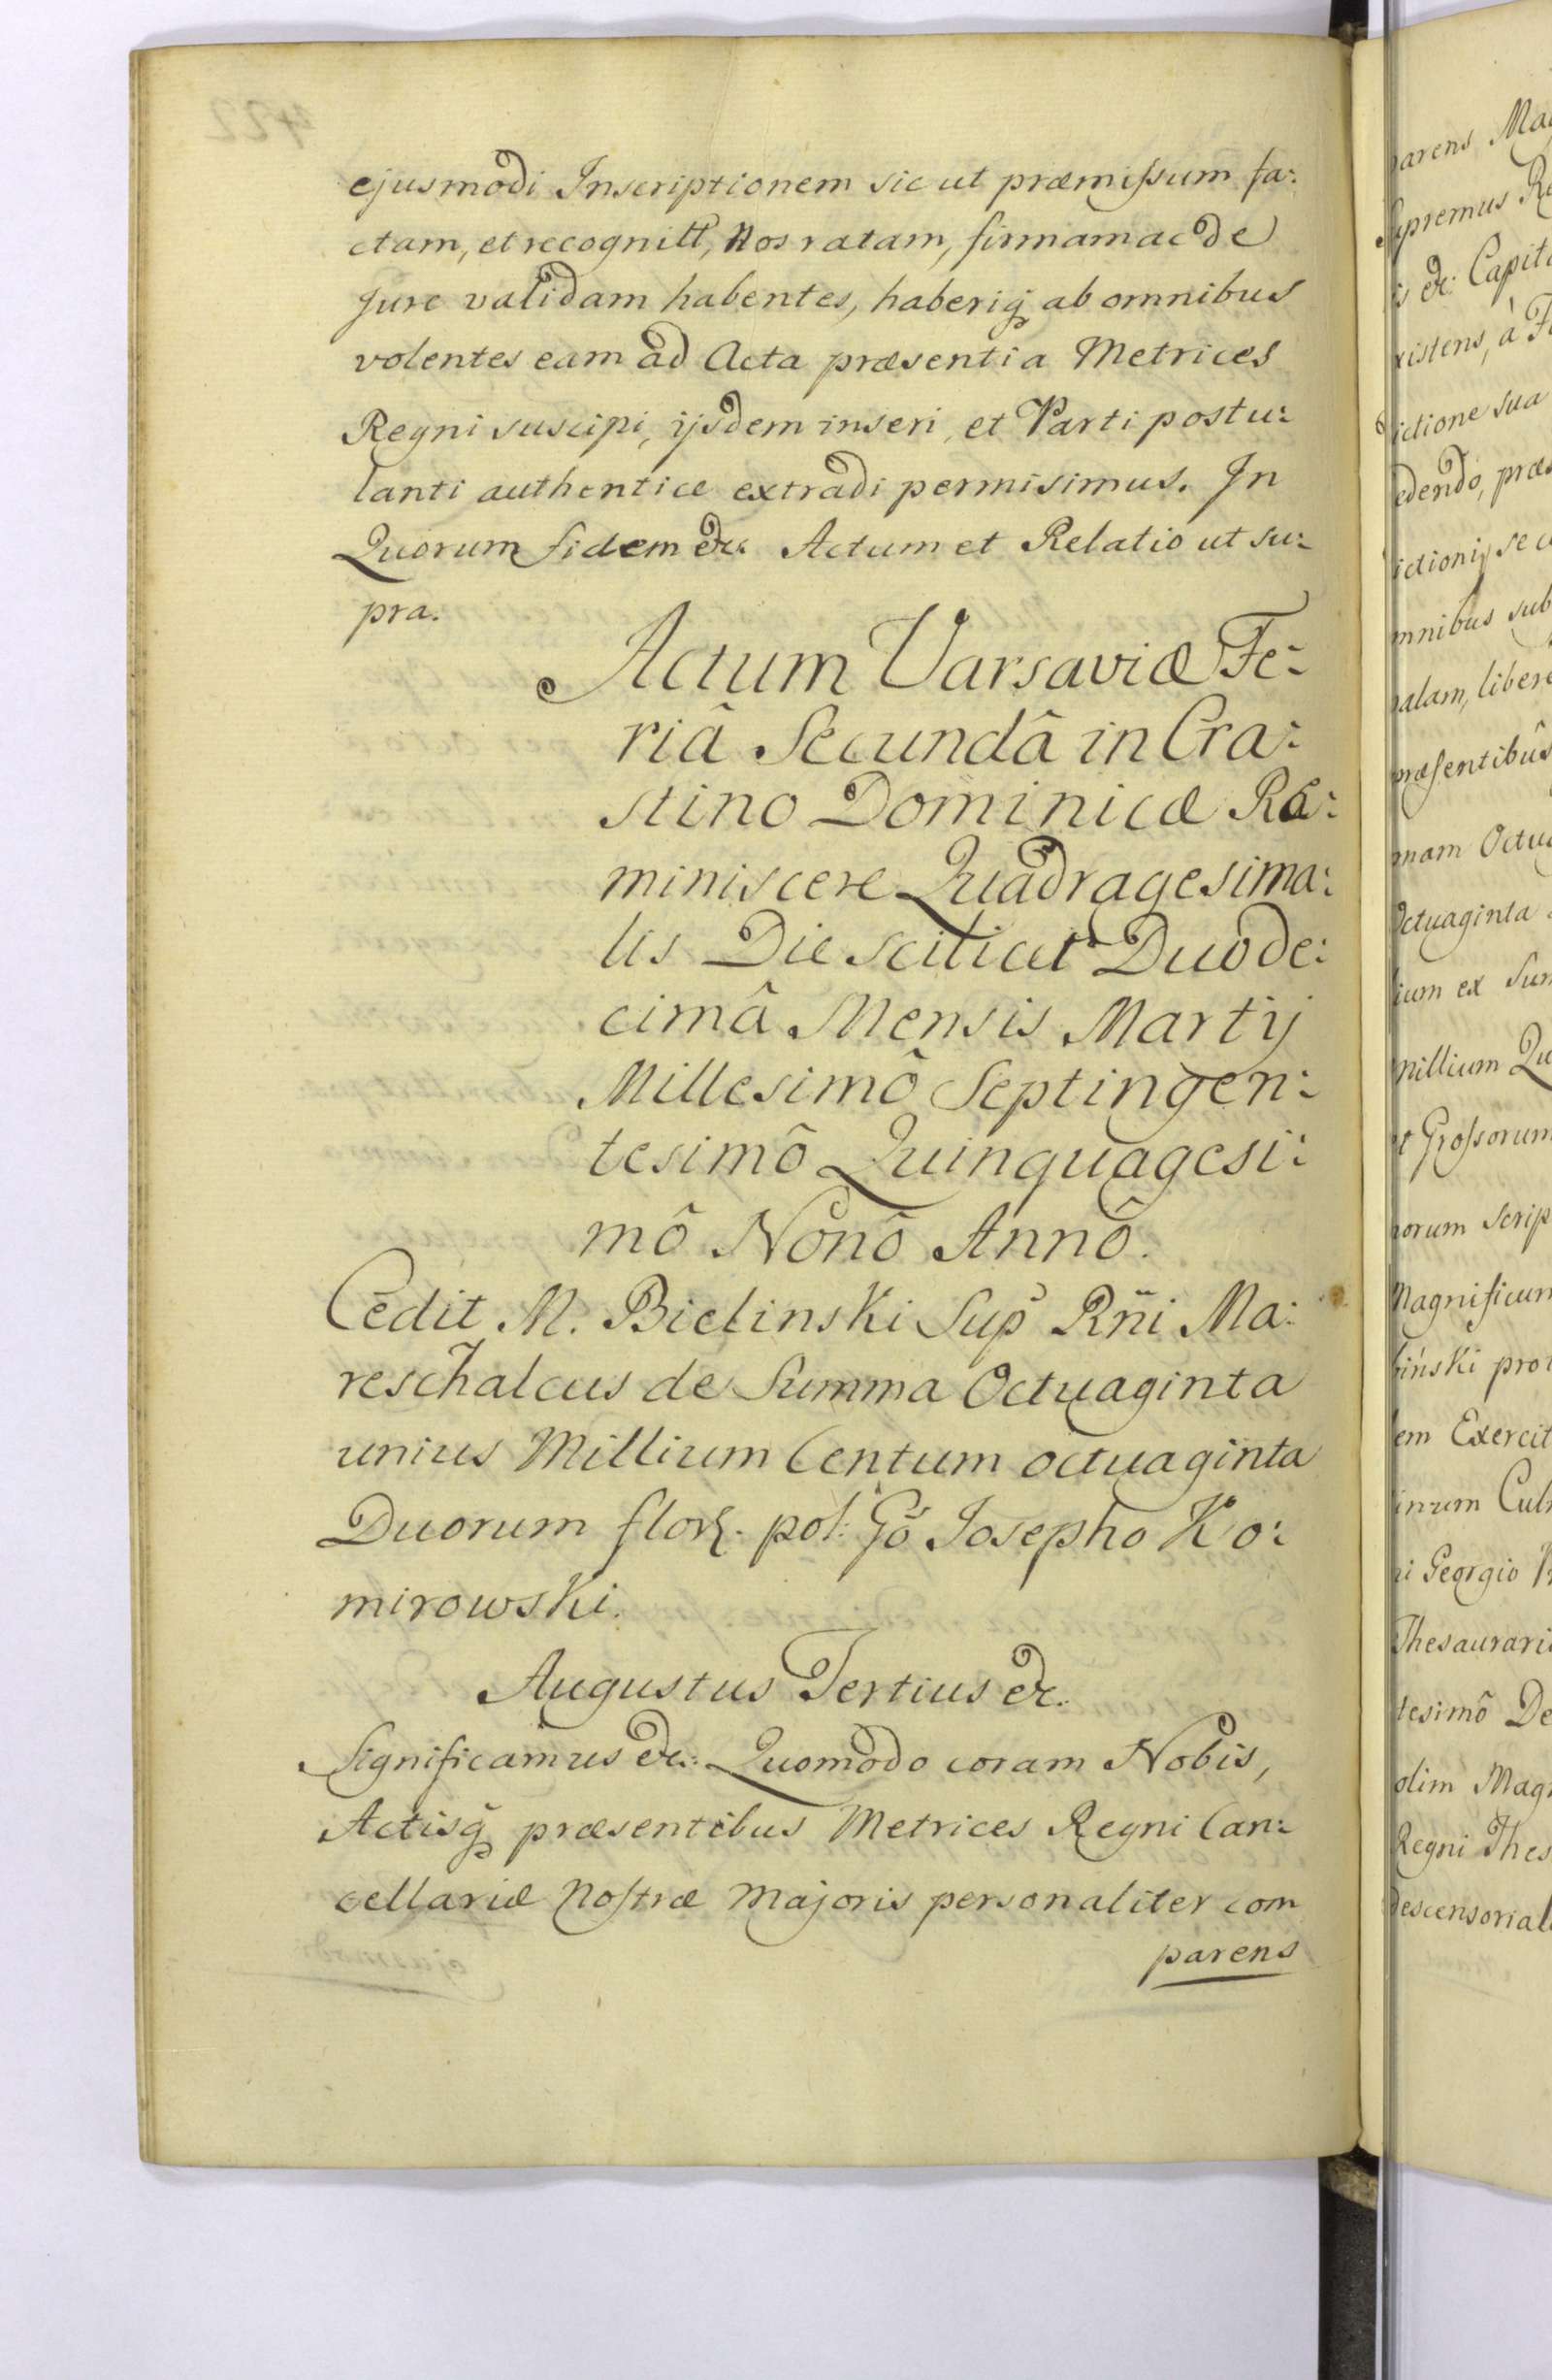 ejusmodi Inscriptionem sic ut præmissum fa:
ctam, et recognitt, Nos ratam, firmam ac de
Jure validam habentes, haberiq₃ ab omnibus
volentes eam ad Acta præsentia Metrices
Regni suscipi, ijsdem inseri, et Parti postu:
lanti authentice extradi permisimus. In
Quorum fidem &c. Actum et Relatio ut su:
pra.
Actum Varsaviæ Fe:
riâ Secundâ in Cra:
stino Dominicæ Re:
miniscere Quadragesima:
lis Die scilicet Duode:
cimâ Mensis Martij
Millesimô Septingen:
tesimô Quinquagesi:
mô Nonô Annô.
Cedit M. Bielinski Sup Rñi Ma:
reschalcus de Summa Octuaginta
unius Millium Centum octuaginta
Duorum flor. pol: Gô Josepho Ko:
mirowski.
Augustus Tertius &c.
Significamus &c: Quomodo coram Nobis,
Actisq₃ præsentibus Metrices Regni Can:
cellariæ Nostræ Majoris personaliter com
parens
arens
premus
&c: Capit
xistens, à
ictione sua
edendo,
ictioniq₃ se
mnibus sub
alam, libere
præsentibûs
mam
Octuaginta
ium ex Sum
millium
et Grossorum
orum scrip
Magnificum
iński
em Exercit
inum Cul
i Georgio
Thesaurari
tesimô De
olim Mag
Regni Thes
descensorial